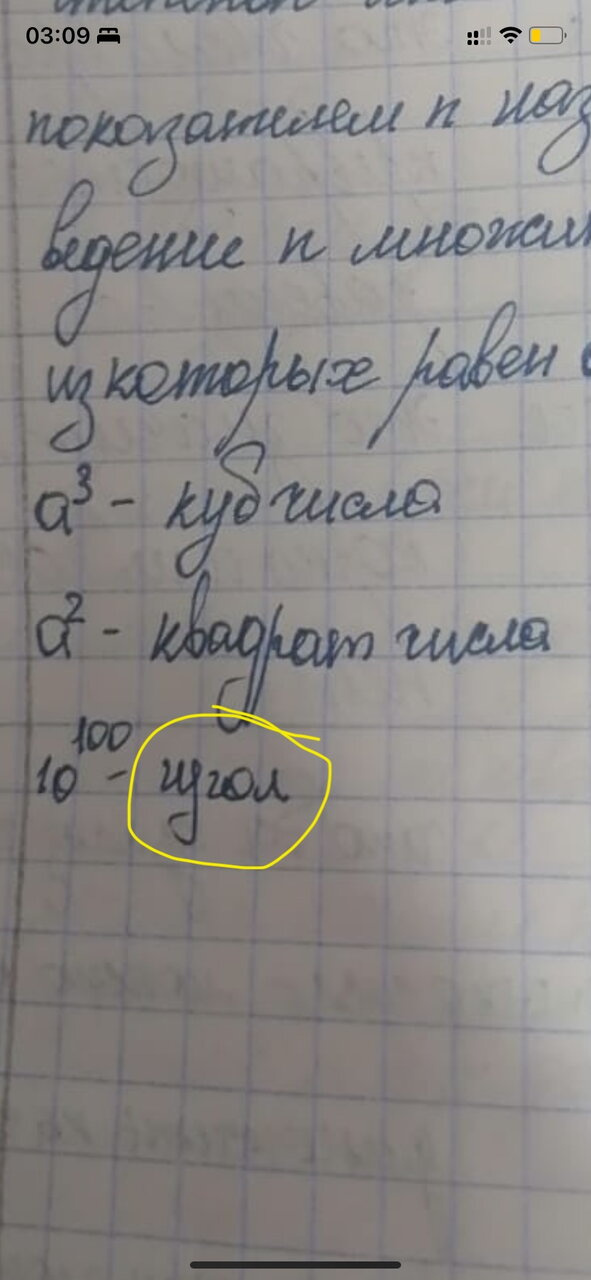 03:09
показателем n наз
ведение n множит
из которых равен
a³ - куб числа
a² - квадрат числа
10¹⁰⁰ - гугол